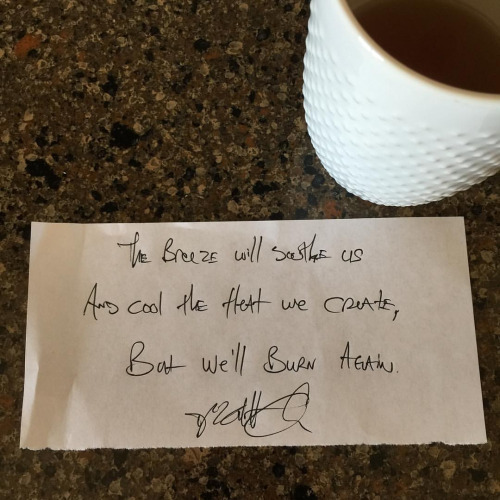 The Breeze will soothe us
And cool the Heat we create,
But we'll Burn Again.